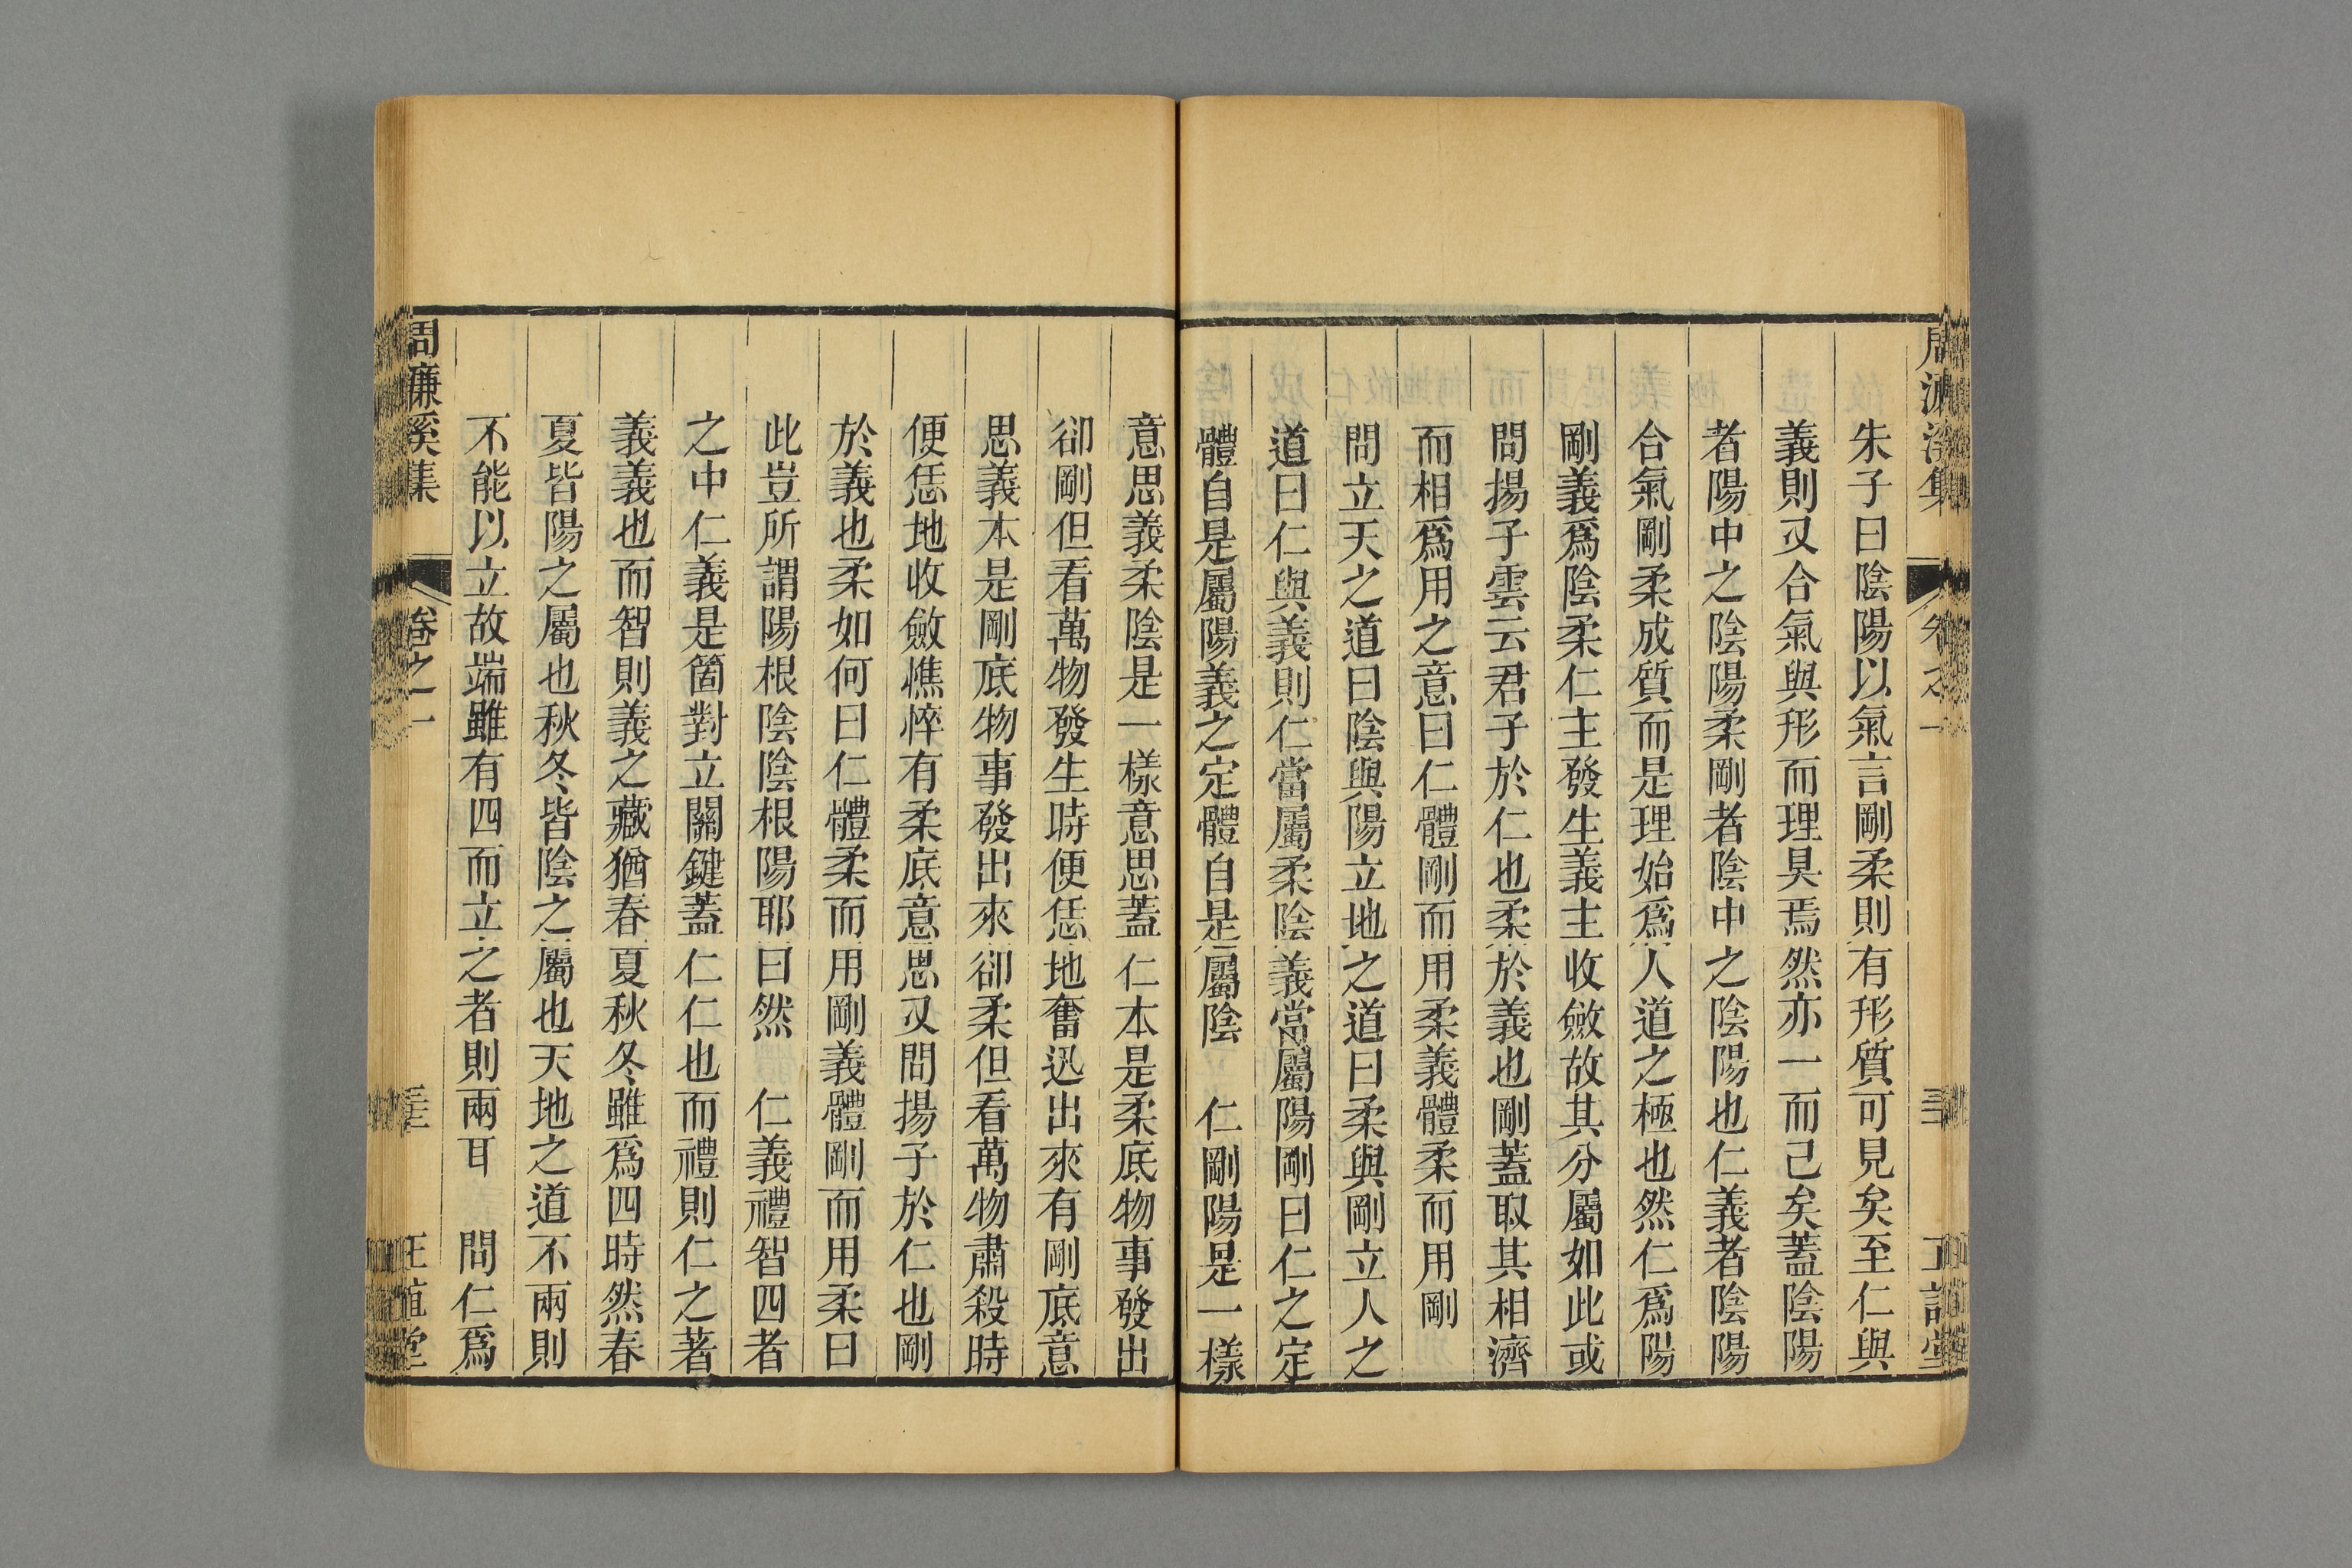 朱子曰陰陽以氣言剛柔則有形質可見矣至仁與
義則又合氣與形而理具焉然亦一而已矣蓋陰陽
者陽中之陰陽柔剛者陰中之陰陽也仁義者陰陽
合氣剛柔成質而是理始爲人道之極也然仁爲陽
剛義爲陰柔仁主發生義主收斂故其分屬如此或
問揚子雲云君子於仁也柔於義也剛蓋取其相濟
而相爲用之意曰仁體剛而用柔義體柔而用剛
問立天之道曰陰與陽立地之道曰柔與剛立人之
道曰仁與義則仁當屬柔陰義當屬陽剛曰仁之定
體自是屬陽義之定體自是屬陰　仁剛陽是一樣
意思義柔陰是一樣意思蓋仁本是柔底物事發出
卻剛但看萬物發生時便恁地奮迅出來有剛底意
思義本是剛底物事發出來卻柔但看萬物肅殺時
便恁地收斂憔悴有柔底意思又問揚子於仁也剛
於義也柔如何曰仁體柔而用剛義體剛而用柔曰
此豈所謂陽根陰陰根陽耶曰然　仁義禮智四者
之中仁義是箇對立關鍵蓋仁仁也而禮則仁之著
義義也而智則義之藏猶春夏秋冬雖爲四時然春
夏皆陽之屬也秋冬皆陰之屬也天地之道不兩則
不能以立故端雖有四而立之者則兩耳　問仁爲
周濂溪集　卷之一